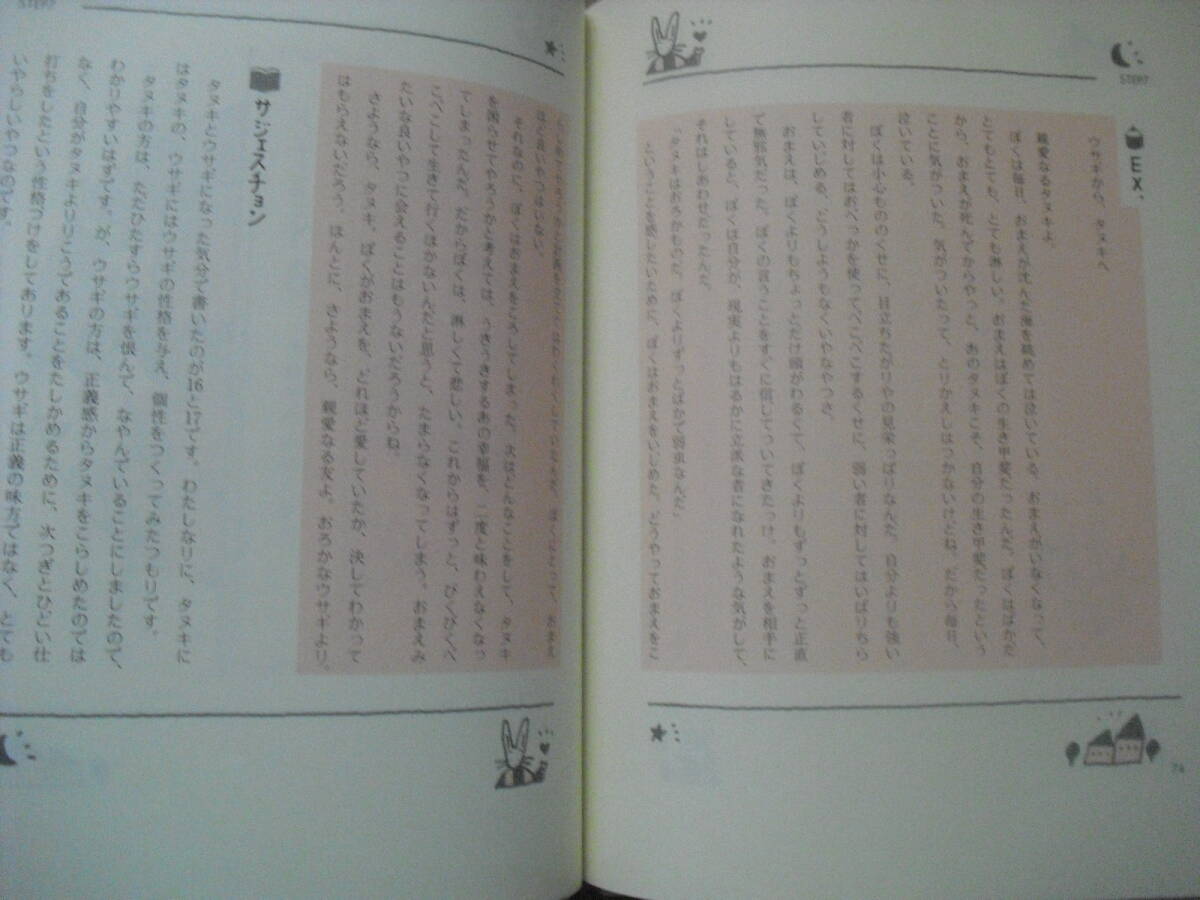 STEP7
EX.
ウサギから、タヌキへ
親愛なるタヌキよ。
ぼくは毎日、おまえが沈んだ海を眺めては泣いている。おまえがいなくなって、
とてもとても、とても淋しい。おまえはぼくの生き甲斐だったんだ。ぼくはばかだ
から、おまえが死んでからやっと、あのタヌキこそ、自分の生き甲斐だったという
ことに気がついた。気がついたって、とりかえしはつかないけどね。だから毎日、
泣いている。
ぼくは小心もののくせに、目立ちたがりやの見栄っぱりなんだ。自分よりも強い
者に対してはおべっかを使ってぺこぺこするくせに、弱い者に対してはいばりちら
していじめる、どうしようもなくいやなやつさ。
おまえは、ぼくよりもちょっとだけ頭がわるくて、ぼくよりもずっとずっと正直
で無邪気だった。ぼくの言うことをすぐに信じてついてきたっけ。おまえを相手に
していると、ぼくは自分が、現実よりもはるかに立派な者になれたような気がして、
それはしあわせだったんだ。
「タヌキはおろかものだ、ぼくよりずっとばかで弱虫なんだ」
ということを感じたいために、ぼくはおまえをいじめた。どうやっておまえをこ
74
STEP7
ほど良いやつはいない。
それなのに、ぼくはおまえをころしてしまった。次はどんなことをして、タヌキ
を困らせてやろうかと考えては、うきうきするあの幸福を、二度と味わえなくなっ
てしまったんだ。だからぼくは、淋しくて悲しい。これからはずっと、びくびくぺ
こぺこして生きて行くほかないんだと思うと、たまらなくなってしまう。おまえみ
たいな良いやつに会えることはもうないだろうからね。
さようなら、タヌキ。ぼくがおまえを、どれほど愛していたか、決してわかって
はもらえないだろう。ほんとに、さようなら、親愛なる友よ。おろかなウサギより。
サジェスチョン
タヌキとウサギになった気分で書いたのが16と17です。わたしなりに、タヌキに
はタヌキの、ウサギにはウサギの性格を与え、個性をつくってみたつもりです。
タヌキの方は、ただひたすらウサギを恨んで、なやんでいることにしましたので、
わかりやすいはずです。が、ウサギの方は、正義感からタヌキをこらしめたのでは
なく、自分がタヌキよりりこうであることをたしかめるために、次つぎとひどい仕
打ちをしたという性格づけをしてあります。ウサギは正義の味方ではなく、とても
いやらしいやつなのです。